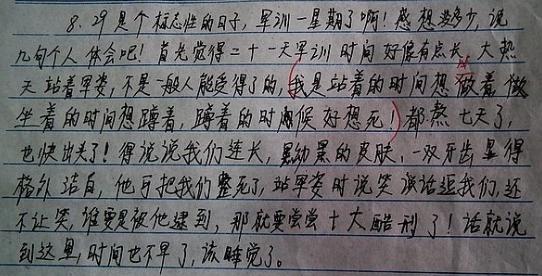 8.29是个标志性的日子,军训一星期了啊!感想没多少,说
几句个人体会吧!首先觉得二十一天军训时间好像有点长,大热
天站着军姿,不是一般人能受得了的,我是站着的时间想做着,做
坐着的时间想蹲着,蹲着的时候好想死!都熬七天了,
也快出头了!得说说我们连长,黑幼黑的皮肤,一双牙齿显得
格外洁白,他可把我们整死了,站军姿时说笑谈话逗我们,还
不让笑,谁要是被他逮到,那就要尝尝十大酷刑了!话就说
到这里,时间也不早了,该睡觉了。